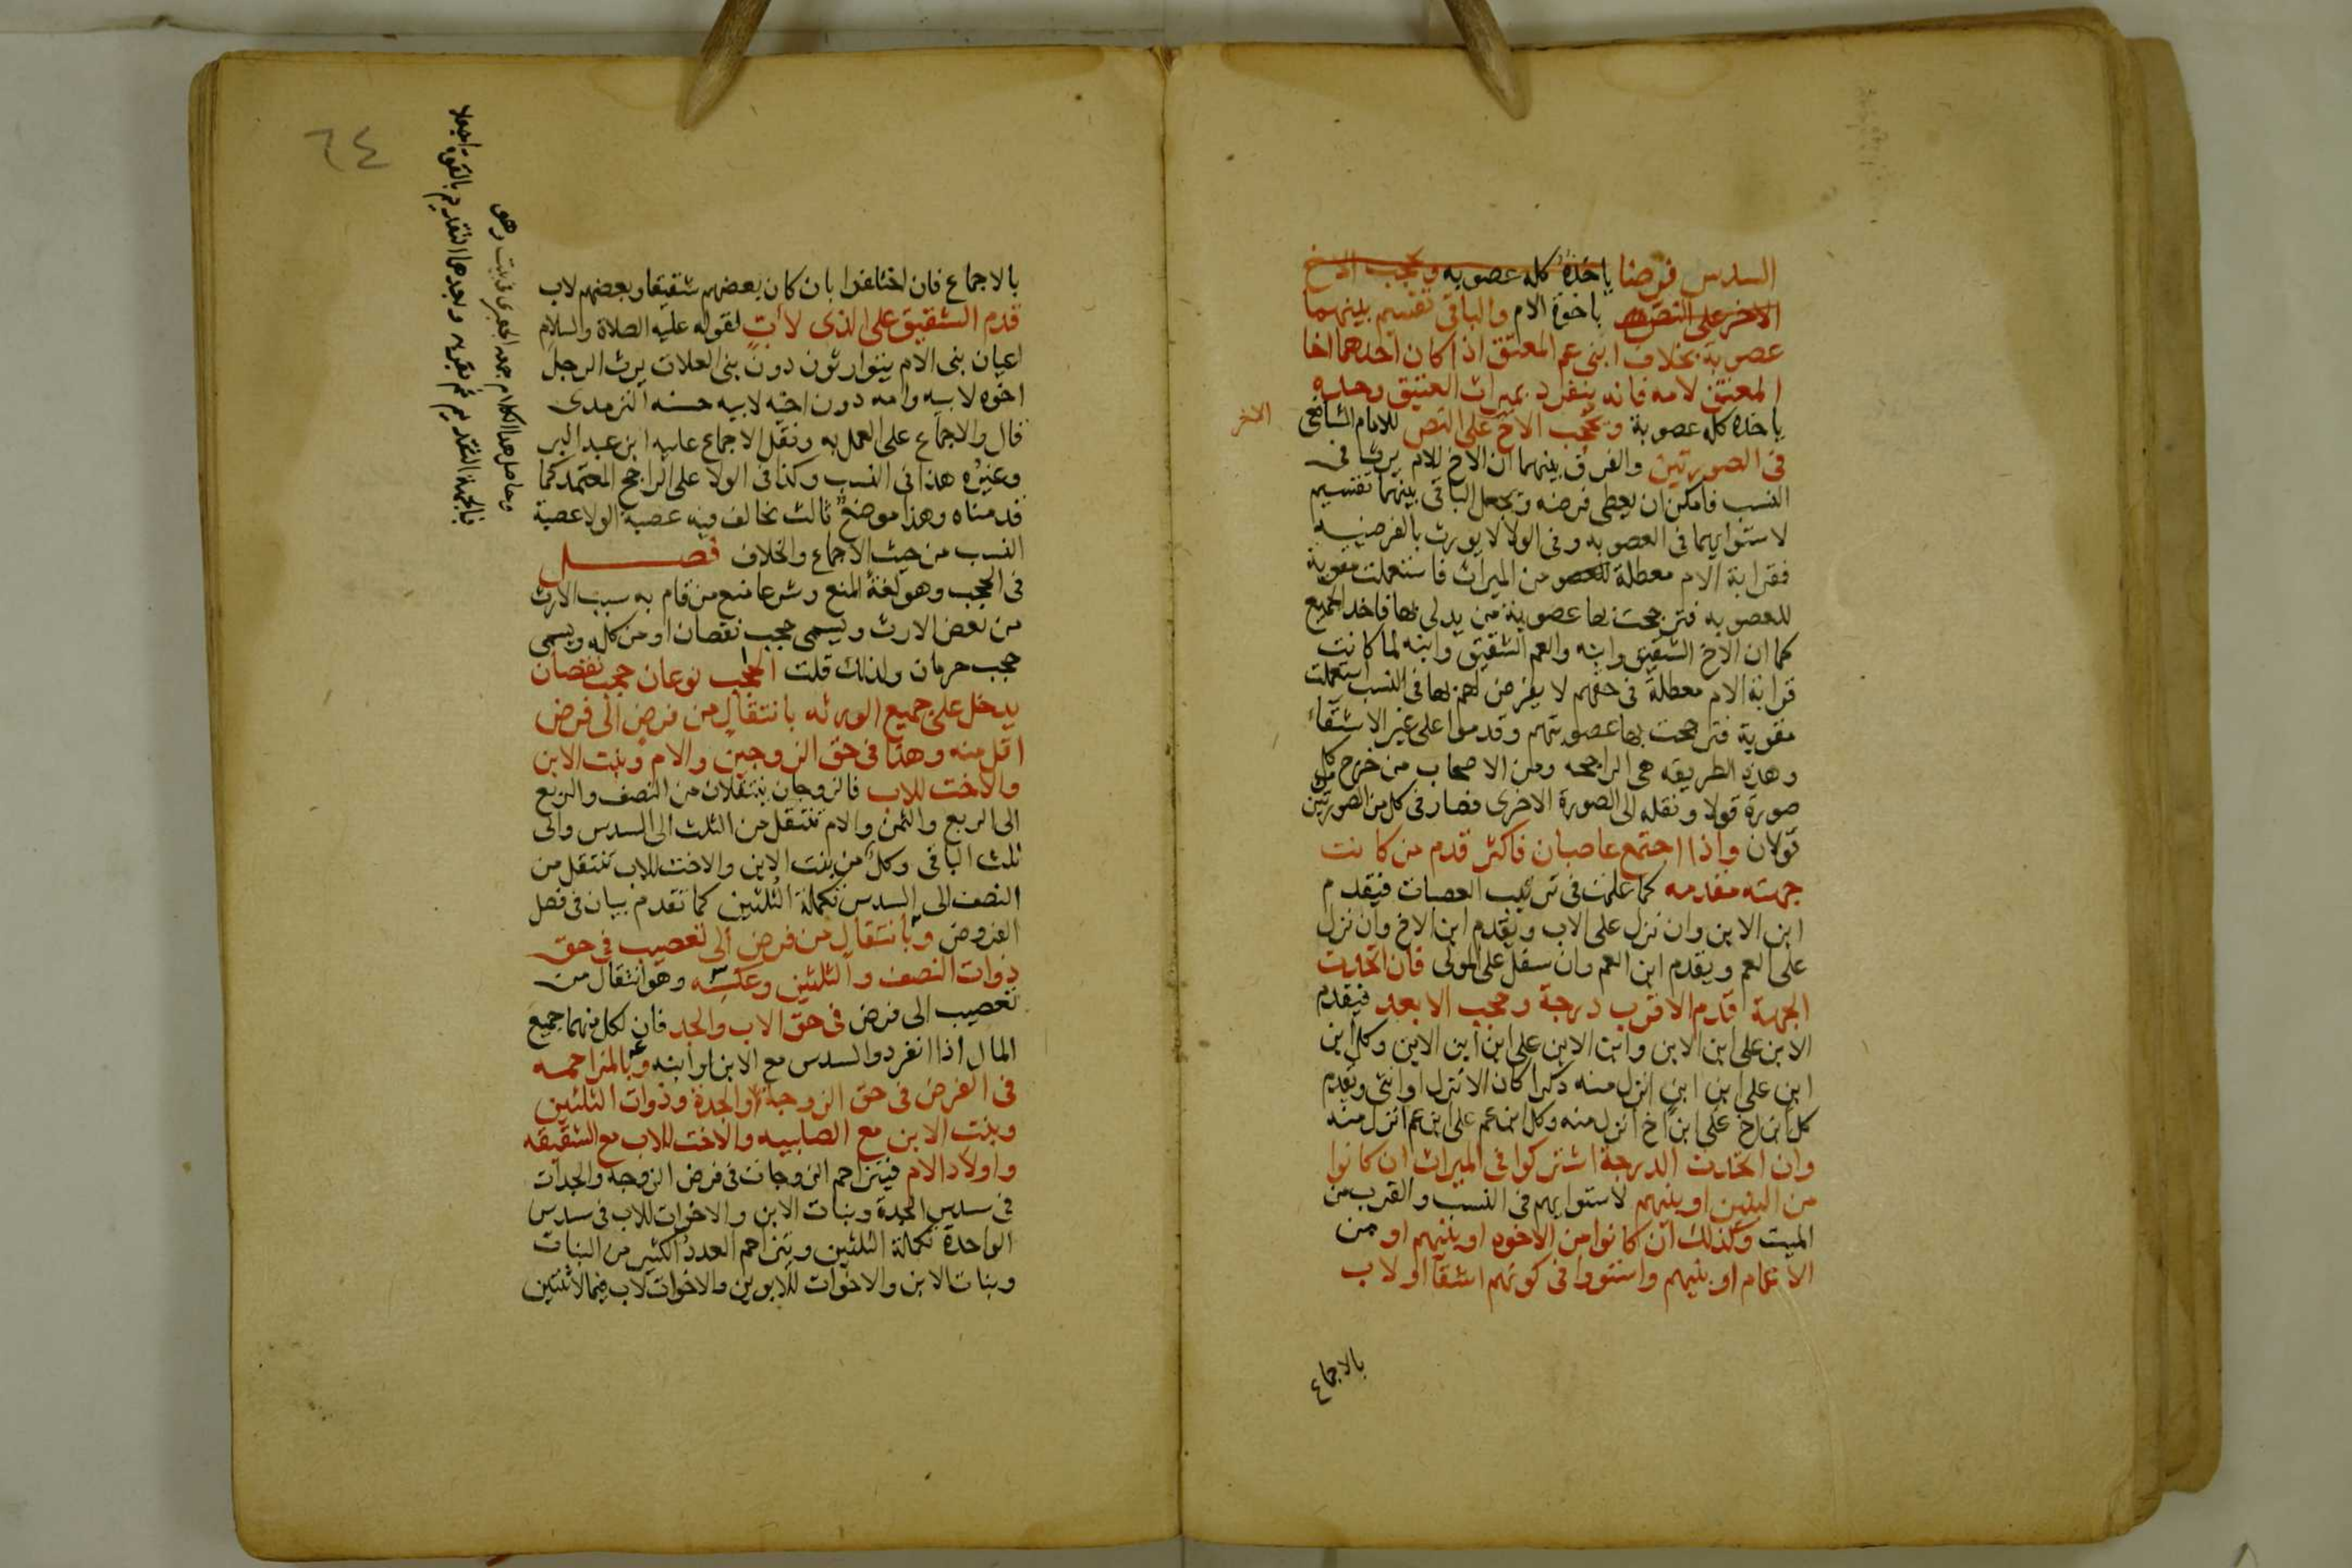 السدس فرضا ياخذه كله عصوبه ويحجب الاخ
الاخر على النص باخوة الام والباقى تقسيم بينهما
عصوبة بخلاف ابنى عم المعتق اذا كان احدهما اخا
المعتق لامه فانه ينفرد بميراث العتيق وحده
ياخذه كله عصوبة ويحجب الاخ على النص للامام الشافعى
الاخر
فى الصورتين والفرق بينهما ان الاخ للام يرث فى
النسب فامكن ان يعطى فرضه ويجعل الباقى بينهما تقسيم
لاستوايهما فى العصوبه وفى الولا لا يورث بالفرضيه
فقرابة الام معطلة من الميراث فاستعملت مقوية
للعصوبه فترجحت بها عصوبة من يدلى بها فاخذ الجميع
كما ان الاخ الشقيق وابنه والعم الشقيق وابنه لما كانت
قرابة الام معطلة فى حقهم لا يفرض لهم بها فى النسب استعملت
مقوية فترجحت بها عصوبتهم وقدموا على غير الاشقاء
وهذه الطريقه هى الراجحه ومن الاصحاب من خرج من كل
صورة قولا ونقله الى الصورة الاخرى فصار فى كل من الصورتين
قولان واذا اجتمع عاصبان فاكثر قدم من كانت
جهته مقدمه كما علمت فى ترتيب العصبات فيقدم
ابن الابن وان نزل على الاب ويقدم ابن الاخ وان نزل
على العم ويقدم ابن العم وان سفل على المولى فان اتحدت
الجهة قدم الاقرب درجة وحجب الابعد فيقدم
الابن على ابن الابن وابن الابن على ابن ابن الابن وكل ابن
ابن على ابن ابن انزل منه ذكرا كان الانزل او انثى ويقدم
كل ابن اخ على ابن اخ انزل منه وكل ابن عم على ابن عم انزل منه
وان اتحدت الدرجة اشتركوا فى الميراث ان كانوا
من البنين او بنيهم لاستوايهم فى النسب والقرب من
الميت وكذلك ان كانوا من الاخوه او بنيهم او من
الاعمام او بنيهم واستووا فى كونهم اشقا او لاب
بالاجماع
٦٤
بالاجماع فان اختلفوا بان كان بعضهم شقيقا وبعضهم لاب
قدم الشقيق على الذى لاب لقوله عليه الصلاة والسلام
اعيان بنى الام يتوارثون دون بنى العلات يرث الرجل
اخوه لابيه وامه دون اخيه لابيه حسنه الترمدى
قال والاجماع على العمل به ونقل الاجماع عليه ابن عبد البر
وغيره هذا فى النسب وكذا فى الولا على الراجح المعتمد كما
قدمناه وهذا موضع ثالث يخالف فيه عصبة الولا عصبة
النسب من حيث الاجماع والخلاف فصل
فى الحجب وهو لغة المنع وشرعا منع من قام به سبب الارث
من بعض الارث ويسمى حجب نقصان او من كله ويسمى
حجب حرمان ولذلك قلت الحجب نوعان حجب نقصان
يدخل على جميع الورثه بانتقال من فرض الى فرض
اقل منه وهذا فى حق الزوجين والام وبنت الابن
والاخت للاب فالزوجان ينتقلان من النصف والربع
الى الربع والثمن والام تنتقل من الثلث الى السدس والى
ثلث الباقى وكل من بنت الابن والاخت للاب تنتقل من
النصف الى السدس تكملة الثلثين كما تقدم بيان فى فصل
الفروض وبانتقال من فرض الى تعصيب فى حق
ذوات النصف والثلثين وعكسه وهو انتقال من
تعصيب الى فرض فى حق الاب والجد فان لكل منهما جميع
المال اذا انفرد والسدس مع الابن او ابنه وبالمزاحمه
فى الفرض فى حق الزوجة والجدة وذوات الثلثين
وبنت الابن مع الصلبيه والاخت للاب مع الشقيقه
واولاد الام فيتزاحم الزوجات فى فرض الزوجه والجدات
فى سدس الجدة وبنات الابن والاخوات للاب فى سدس
الواحدة تكملة الثلثين ويتزاحم العدد الكثير من البنات
وبنات الابن والاخوات للابوين والاخوات لاب فيما للاثنتين
وحاصل هذا الكلام جمعه الجعبرى فى بيت وهو
فبالجهة التقديم ثم بقربه وبعدهما التقديم بالقوة اجعلا